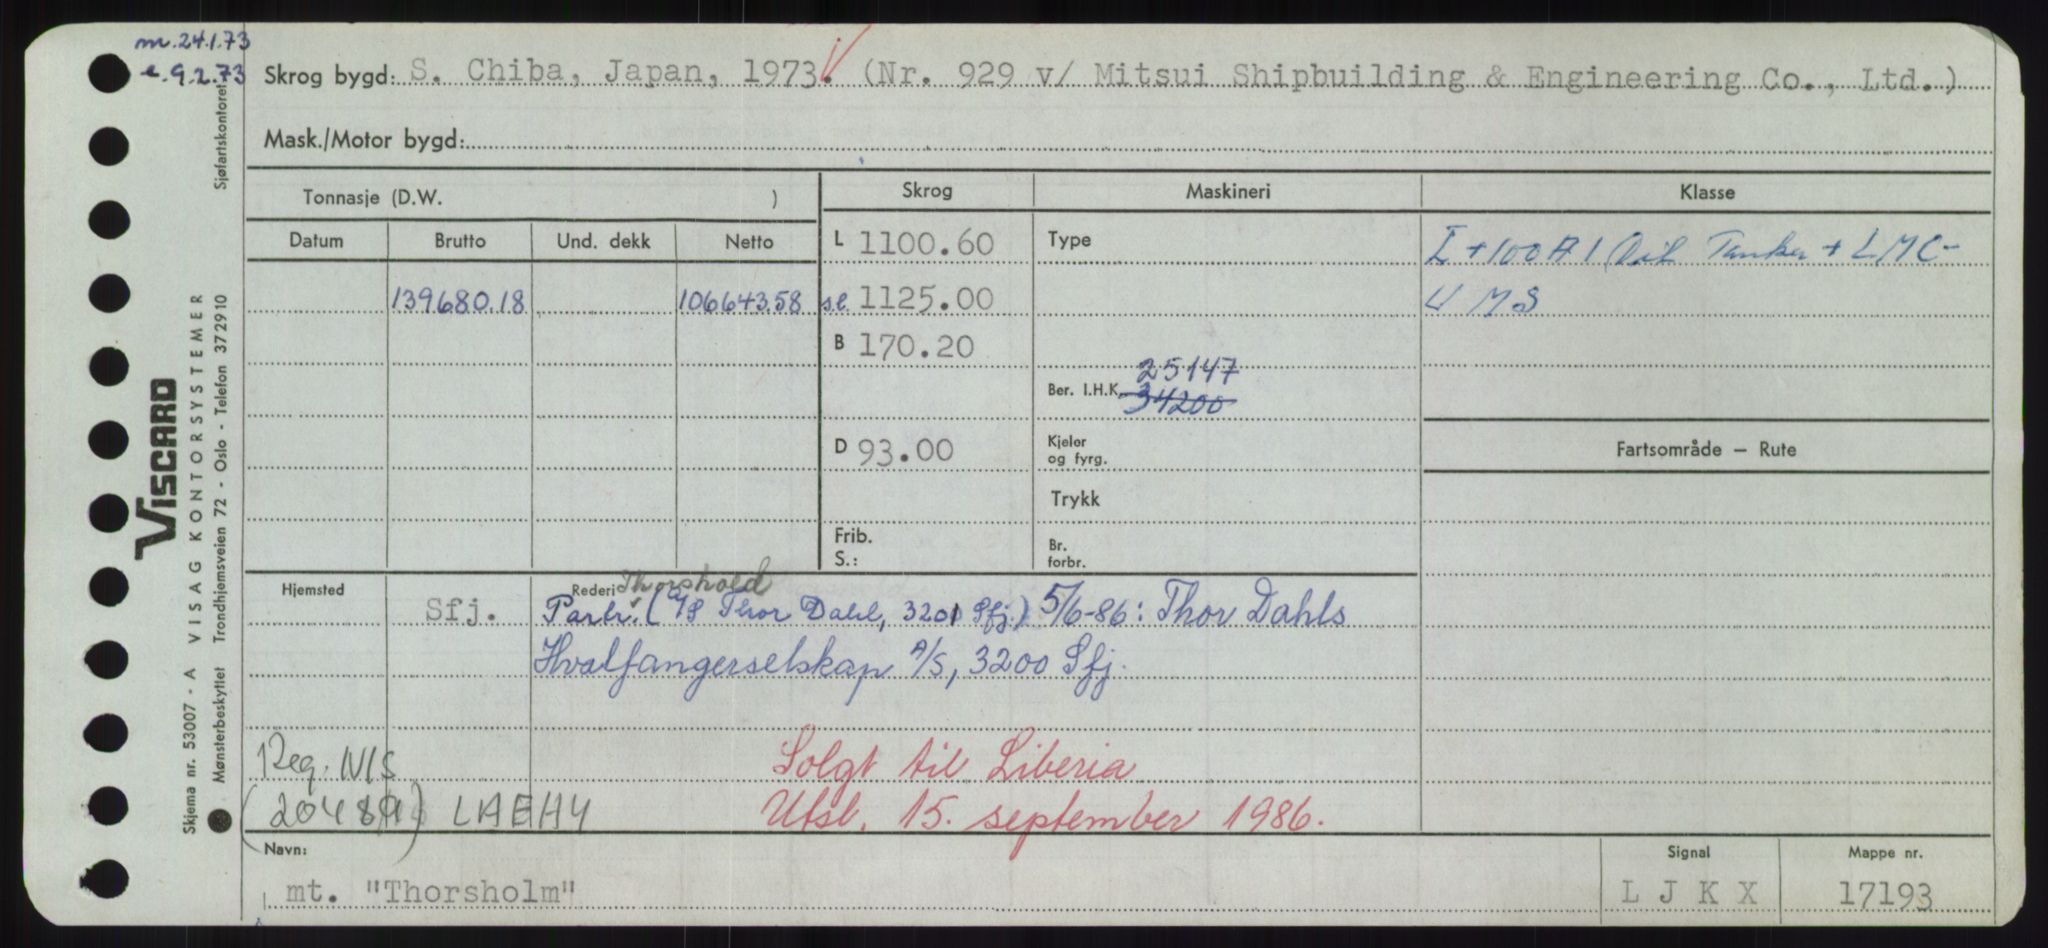 m. 24.1.73
e. 9.2.73
Skrog bygd: S. Chiba, Japan, 1973. (Nr. 929 v/ Mitsui Shipbuilding & Engineering Co., Ltd.)
Mask./Motor bygd:
Tonnasje (D.W. )
Skrog
Maskineri
Klasse
Datum
Brutto
Und. dekk
Netto
L 1100.60
Type
I +100A1 Oil Tanker + LMC-
139680.18
106643.58
s.l. 1125.00
UMS
B 170.20
25147
Ber. I.H.K. 34200
D 93.00
Kjeler
og fyrg.
Fartsområde – Rute
Trykk
Frib.
S.:
Br.
forbr.
Hjemsted
Sfj.
Rederi
Thorshold
Partr. (A/S Thor Dahl, 3201 Sfj.) 5/6-86: Thor Dahls
Hvalfangerselskap A/S, 3200 Sfj.
Reg. NIS
Solgt til Liberia
LAEH4
Utsl. 15. september 1986.
Navn:
mt. "Thorsholm"
Signal
L J K X
Mappe nr.
17193
Skjema nr. 53007 - A VISAG KONTORSYSTEMER
VISCARD
Mønsterbeskyttet Trondhjemsveien 72 - Oslo - Telefon 37 29 10
Sjøfartskontoret